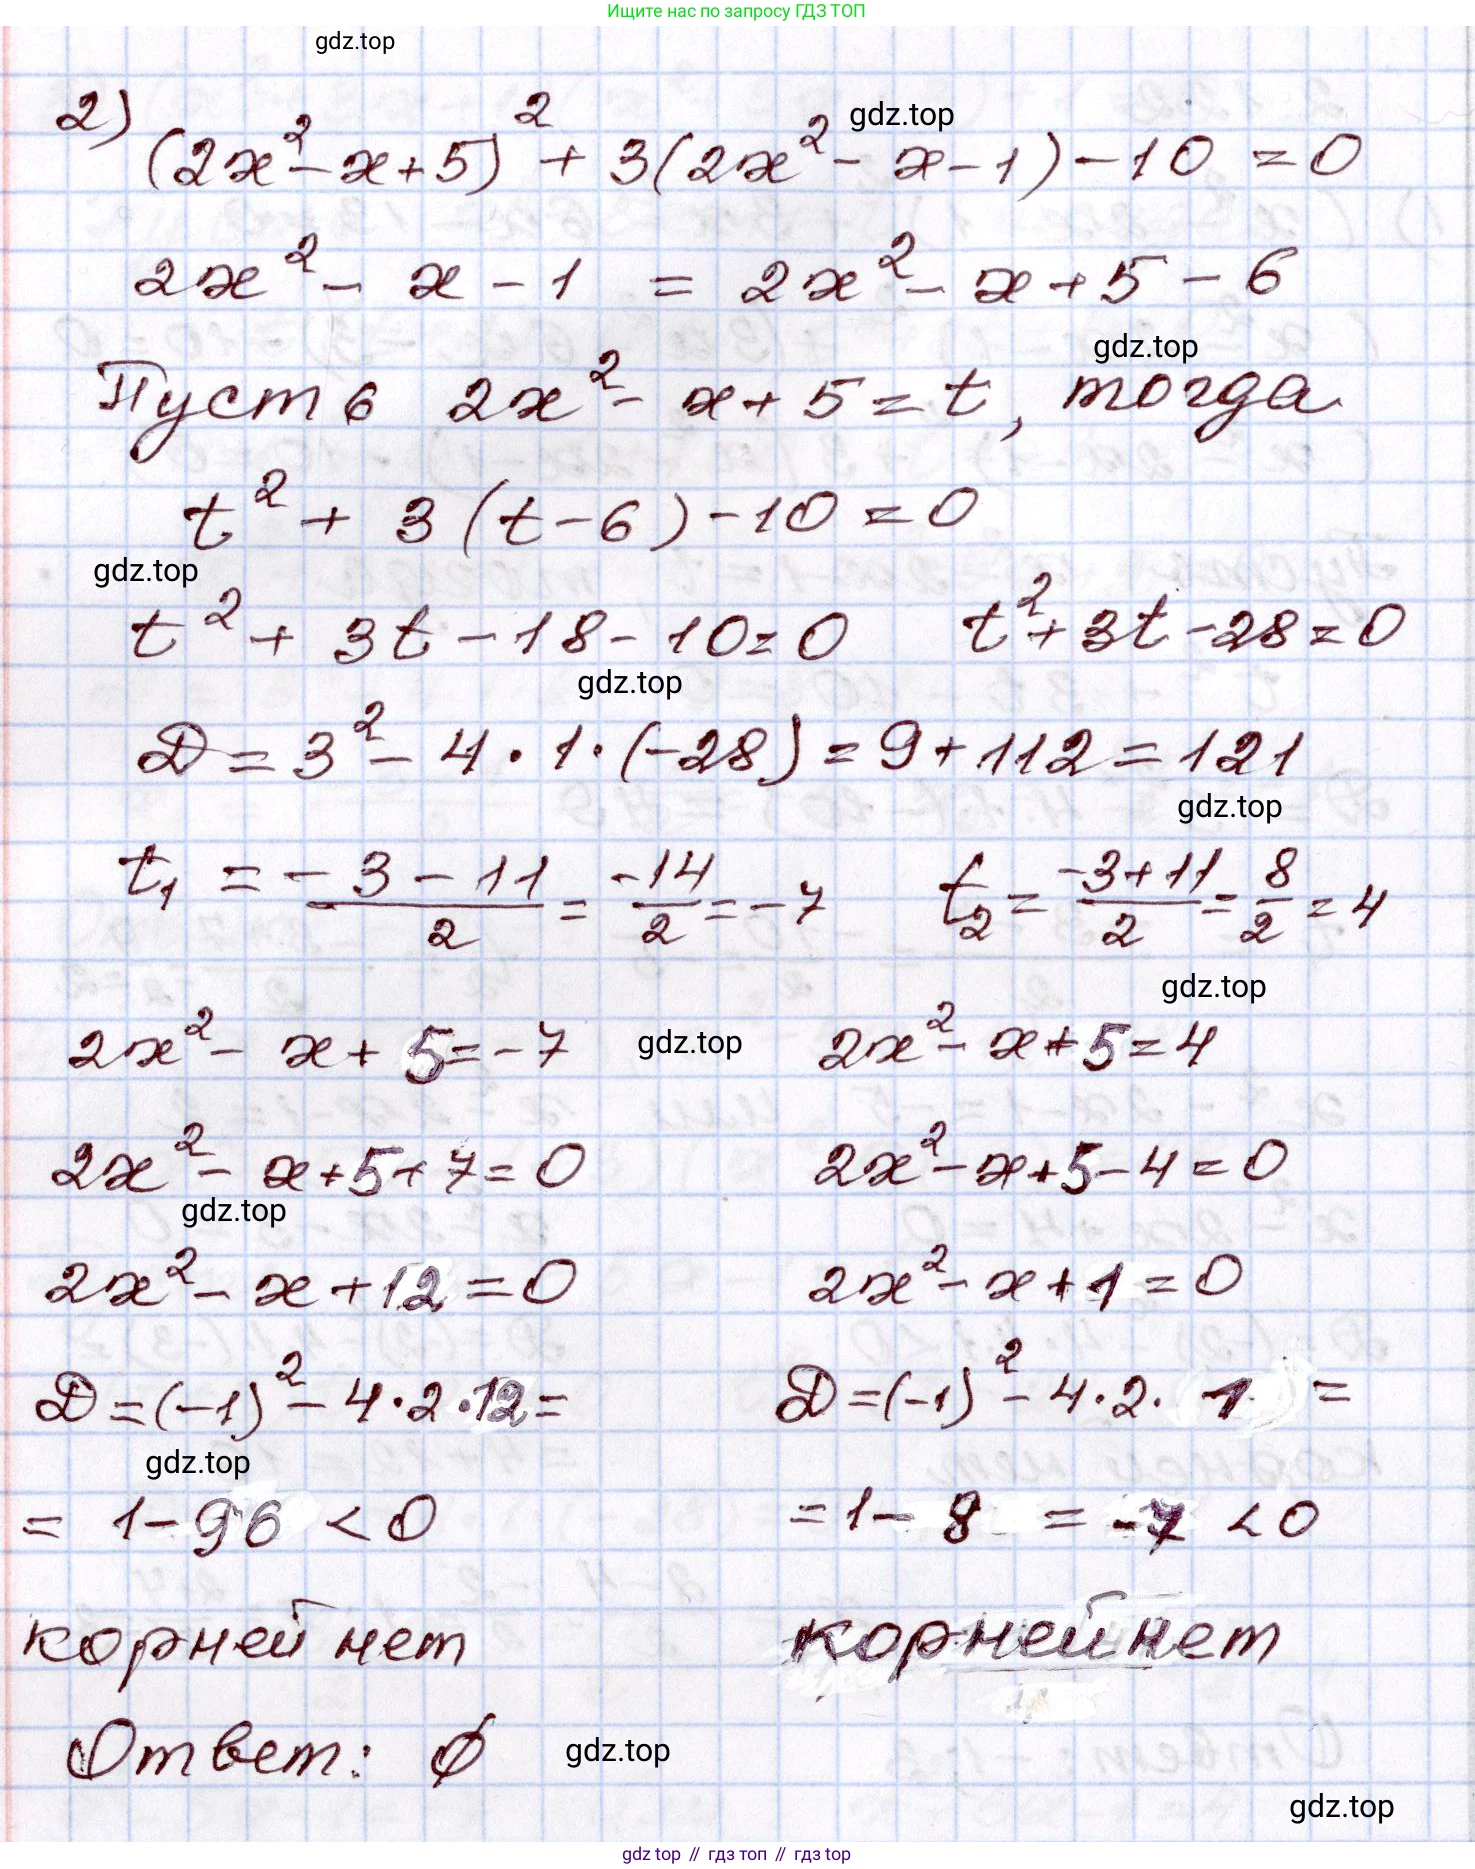 Ищите нас по запросу ГДЗ ТОП
gdz.top
2) (2x² - x + 5)² + 3(2x² - x - 1) - 10 = 0
gdz.top
2x² - x - 1 = 2x² - x + 5 - 6
gdz.top
Пусть 2x² - x + 5 = t, тогда
t² + 3(t - 6) - 10 = 0
gdz.top
t² + 3t - 18 - 10 = 0 t² + 3t - 28 = 0
gdz.top
D = 3² - 4 · 1 · (-28) = 9 + 112 = 121
gdz.top
t₁ = (-3 - 11)/2 = -14/2 = -7 t₂ = (-3 + 11)/2 = 8/2 = 4
gdz.top
2x² - x + 5 = -7 gdz.top 2x² - x + 5 = 4
2x² - x + 5 + 7 = 0 2x² - x + 5 - 4 = 0
gdz.top
2x² - x + 12 = 0 2x² - x + 1 = 0
D = (-1)² - 4 · 2 · 12 = D = (-1)² - 4 · 2 · 1 =
gdz.top
= 1 - 96 < 0 = 1 - 8 = -7 < 0
корней нет корней нет
Ответ: ∅ gdz.top
gdz.top
gdz top // гдз топ // гдз top